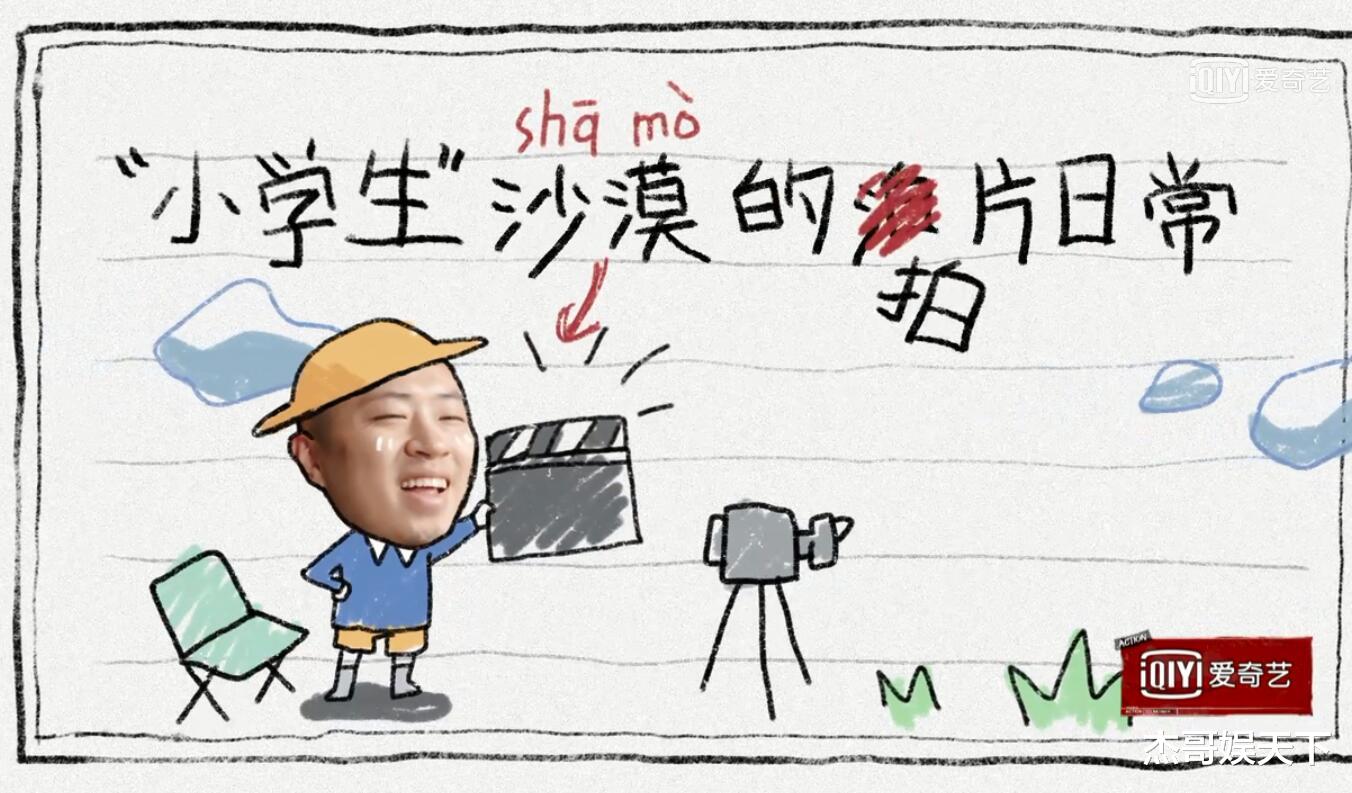 iQIYI 爱奇艺
shā mò
“小学生”沙漠的片日常
拍
ACTION
iQIYI 爱奇艺
杰哥娱天下